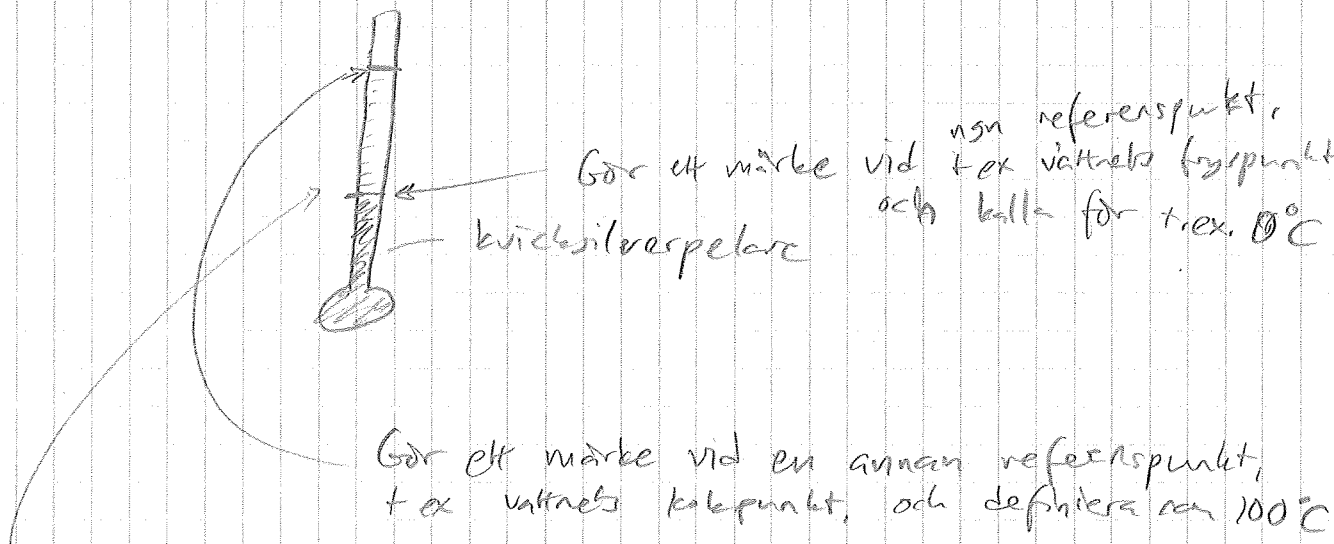 ngn referenspunkt,
Gör ett märke vid t ex vattnets fryspunkt
och kalla för t.ex. 0°C
kvicksilverpelare
Gör ett märke vid en annan referenspunkt,
t ex vattnets kokpunkt, och definiera som 100°C